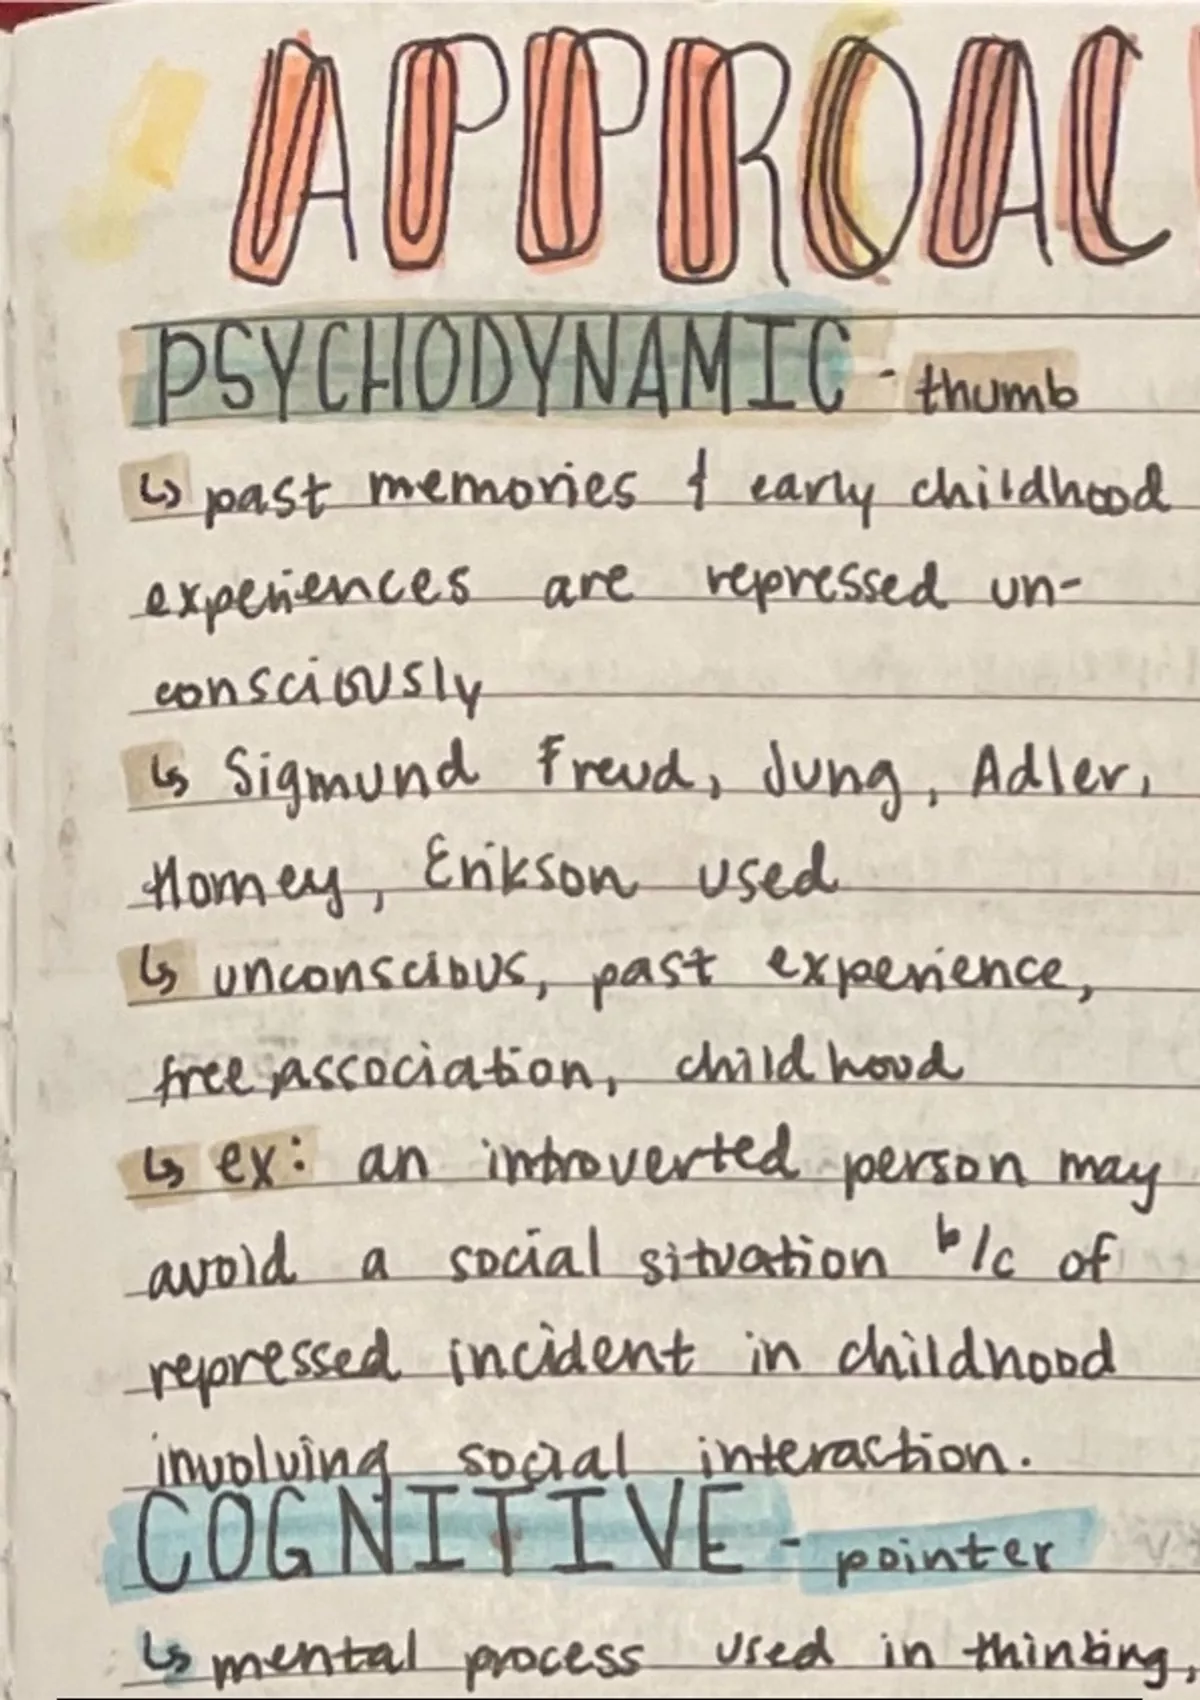 APPROAC
PSYCHODYNAMIC - thumb
↳ past memories & early childhood
experiences are repressed un-
consciously
↳ Sigmund Freud, Jung, Adler,
Horney, Erikson used
↳ unconscious, past experience,
free association, childhood
↳ ex: an introverted person may
avoid a social situation b/c of
repressed incident in childhood
involving social interaction.
COGNITIVE - pointer
↳ mental process used in thinking,